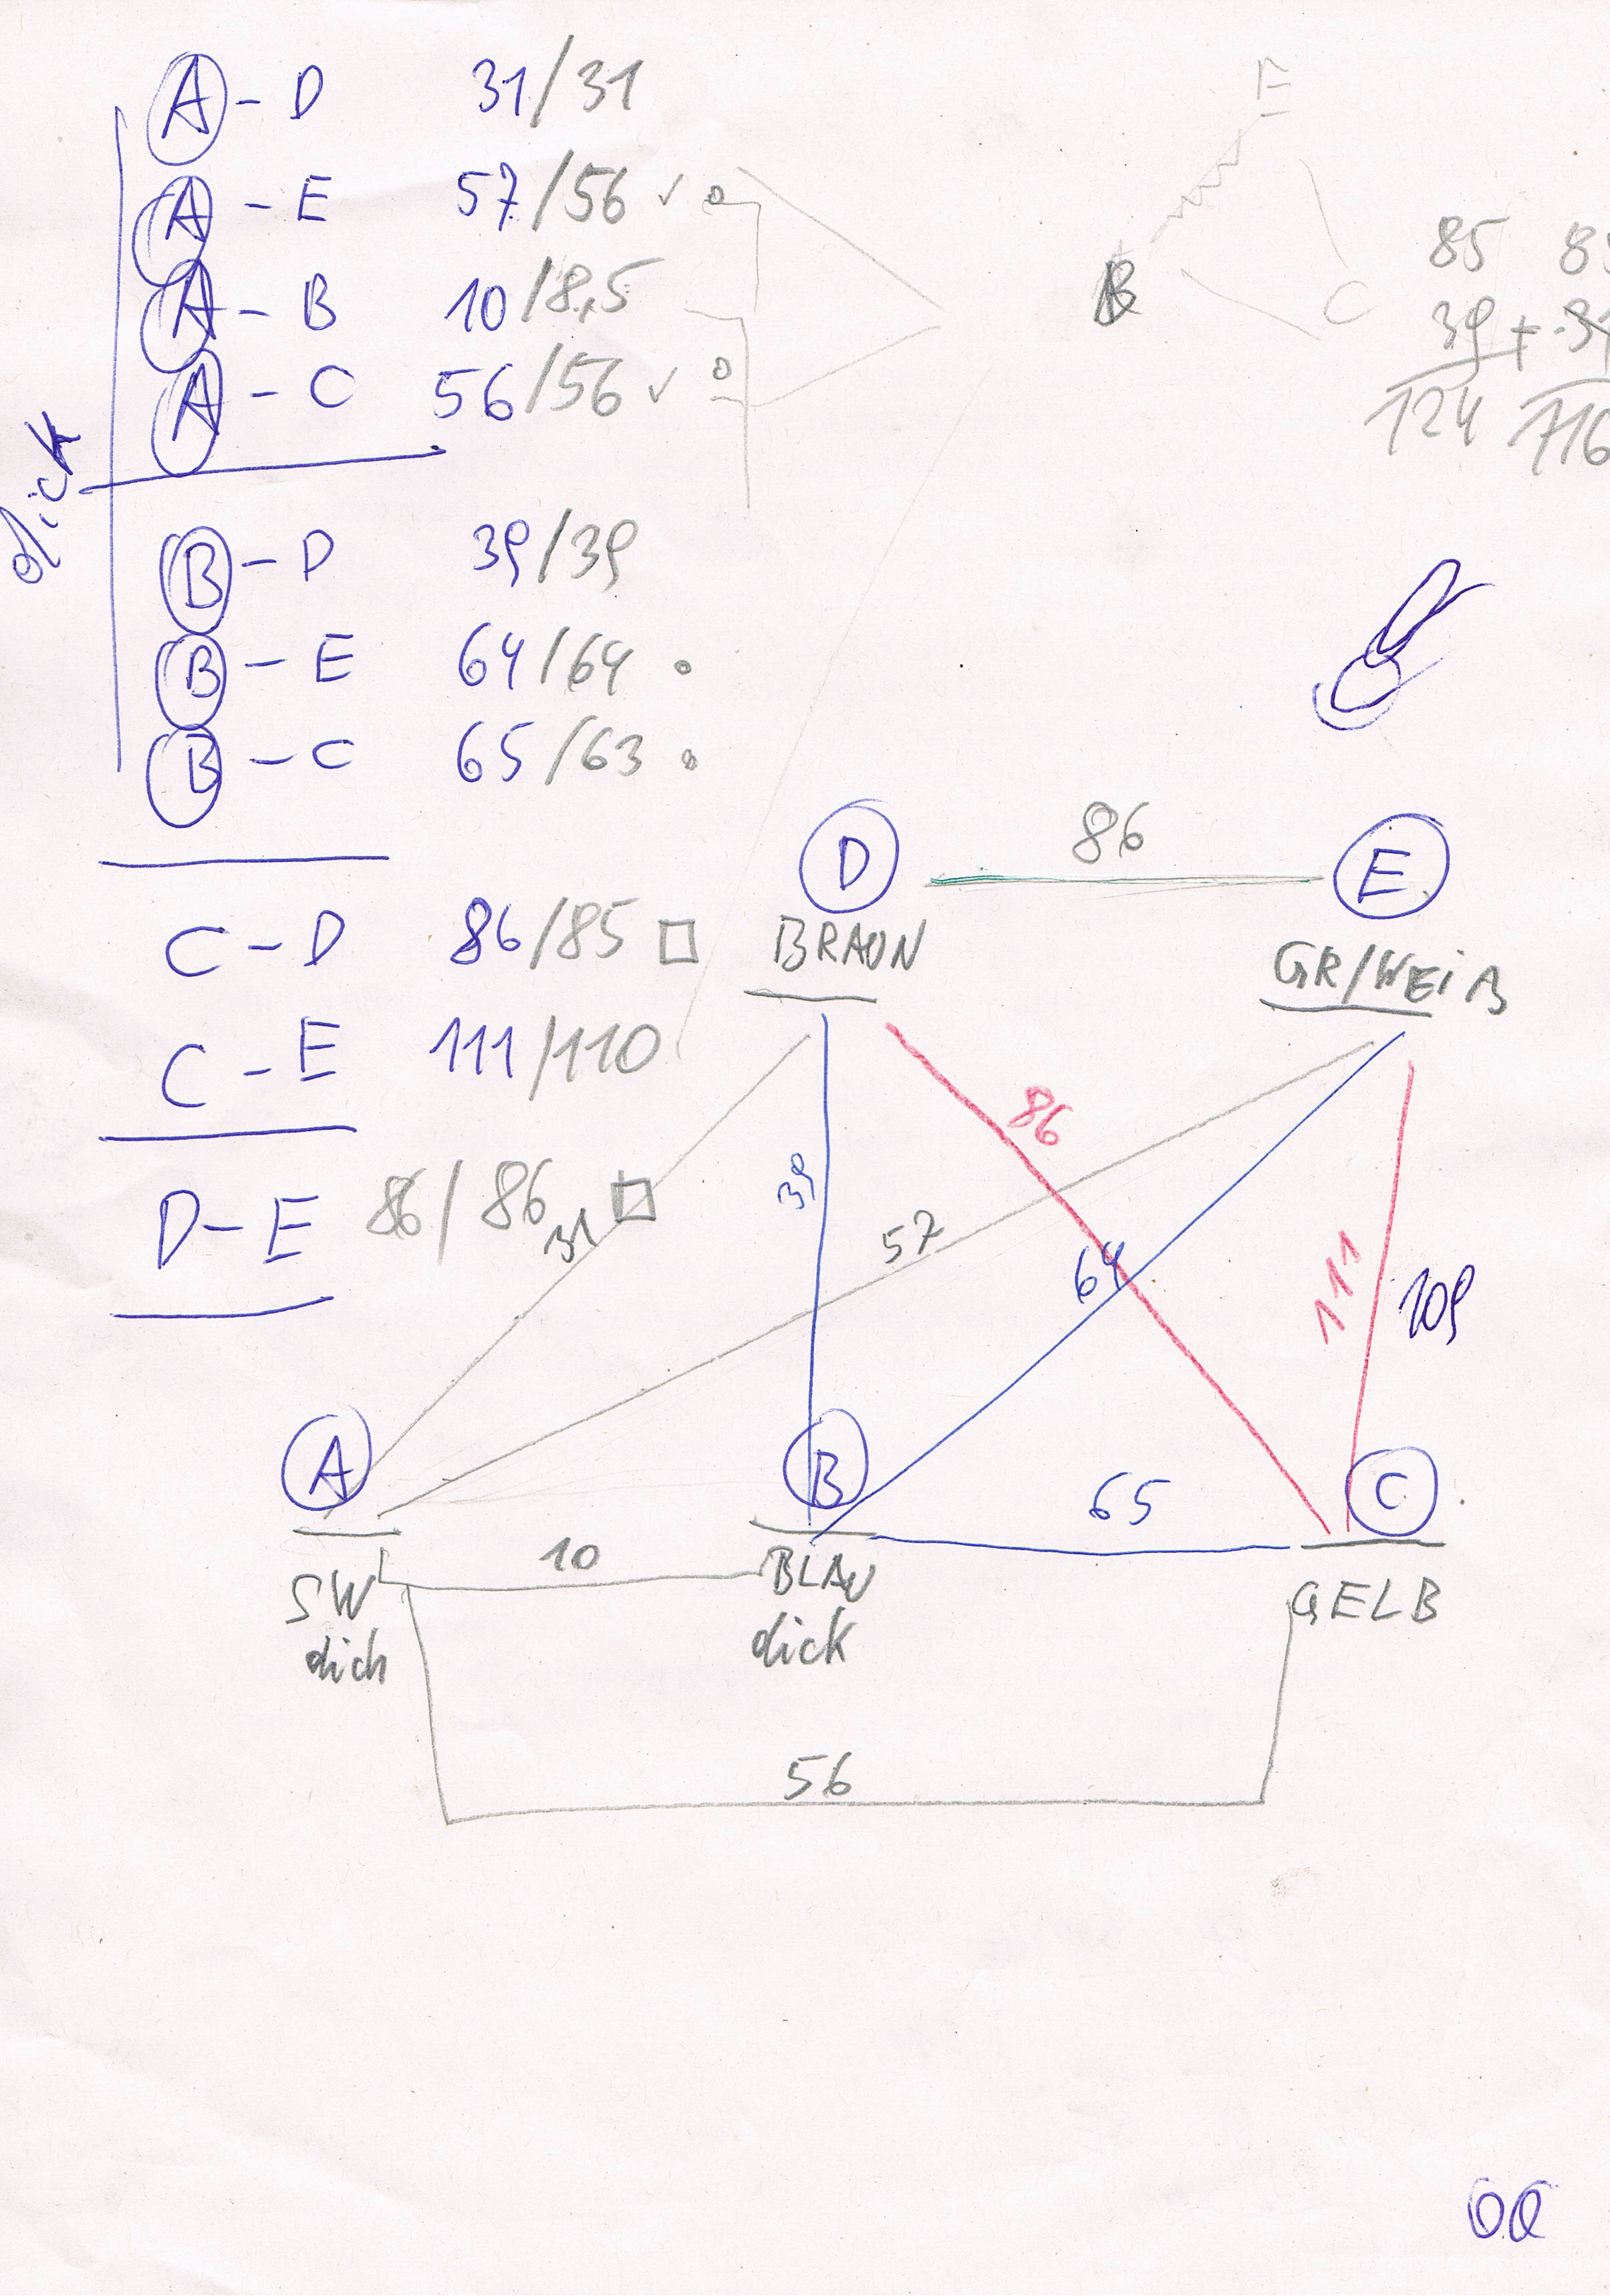 A - D 31/31
A - E 57/56 ✓
A - B 10/8,5
A - C 56/56 ✓
dick
B - D 39/39
B - E 64/64
B - C 65/63
C - D 86/85
C - E 111/110
D - E 86/86
E
B
C
85
39 +
124
116
D
86
E
BRAUN
GR/WEIß
86
39
31
57
64
111
109
A
B
65
C
10
SW
dick
BLAU
dick
GELB
56